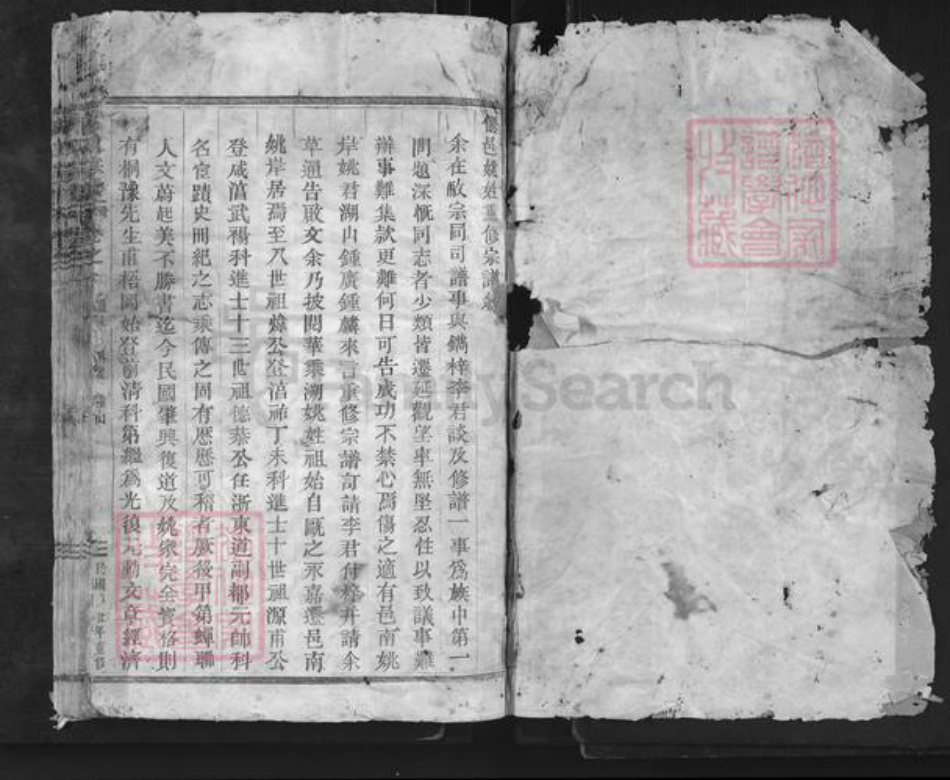 邑姚姓重修宗譜
余在敝宗同司譜事與鐫梓李君談及修譜一事為族中第一
問題深慨同志者少類皆遷延觀望率無堅忍性以致議事難
辦事難集款更難何日可告成功不禁心焉傷之適有邑南姚
岸姚君湖冉鍾廣鍾麟來言重修宗譜訂請李君付梓并請余
草通告啟文余乃披閱華乘溯姚姓祖始自甌之永嘉遷邑南
姚岸居焉至八世祖煒公登淳祐丁未科進士十世祖源甫公
登咸淳武舉科進士十三世祖德恭公任浙東道副都元帥科
名宦蹟史冊紀之志乘傳之固有歷歷可稽者厥後甲第蟬聯
人文蔚起美不勝書迄今民國肇興復道及姚眾完全資格則
有桐豫先生甫梧岡始登前清科第繼為光復元勳文章經濟
民國
FamilySearch